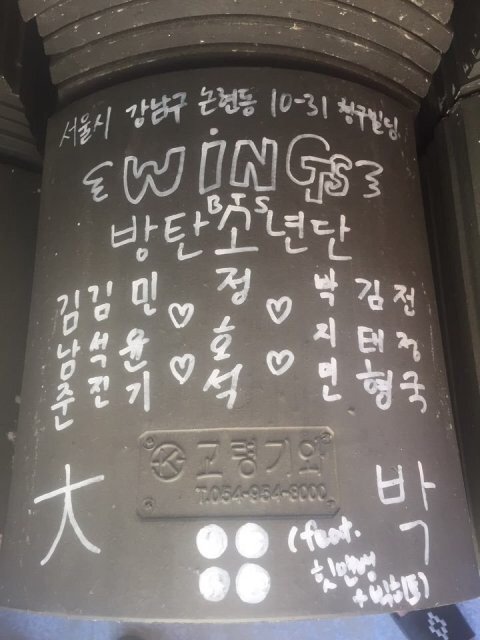 서울시 강남구 논현동 10-31 청구빌딩
WiNGS
BTS
방탄소년단
김남준 김석진 민윤기 ♡♡ 정호석 ♡♡ 박지민 김태형 전정국
고령기와
T.054-954-8000
大 박
(feat.
힛맨뱅